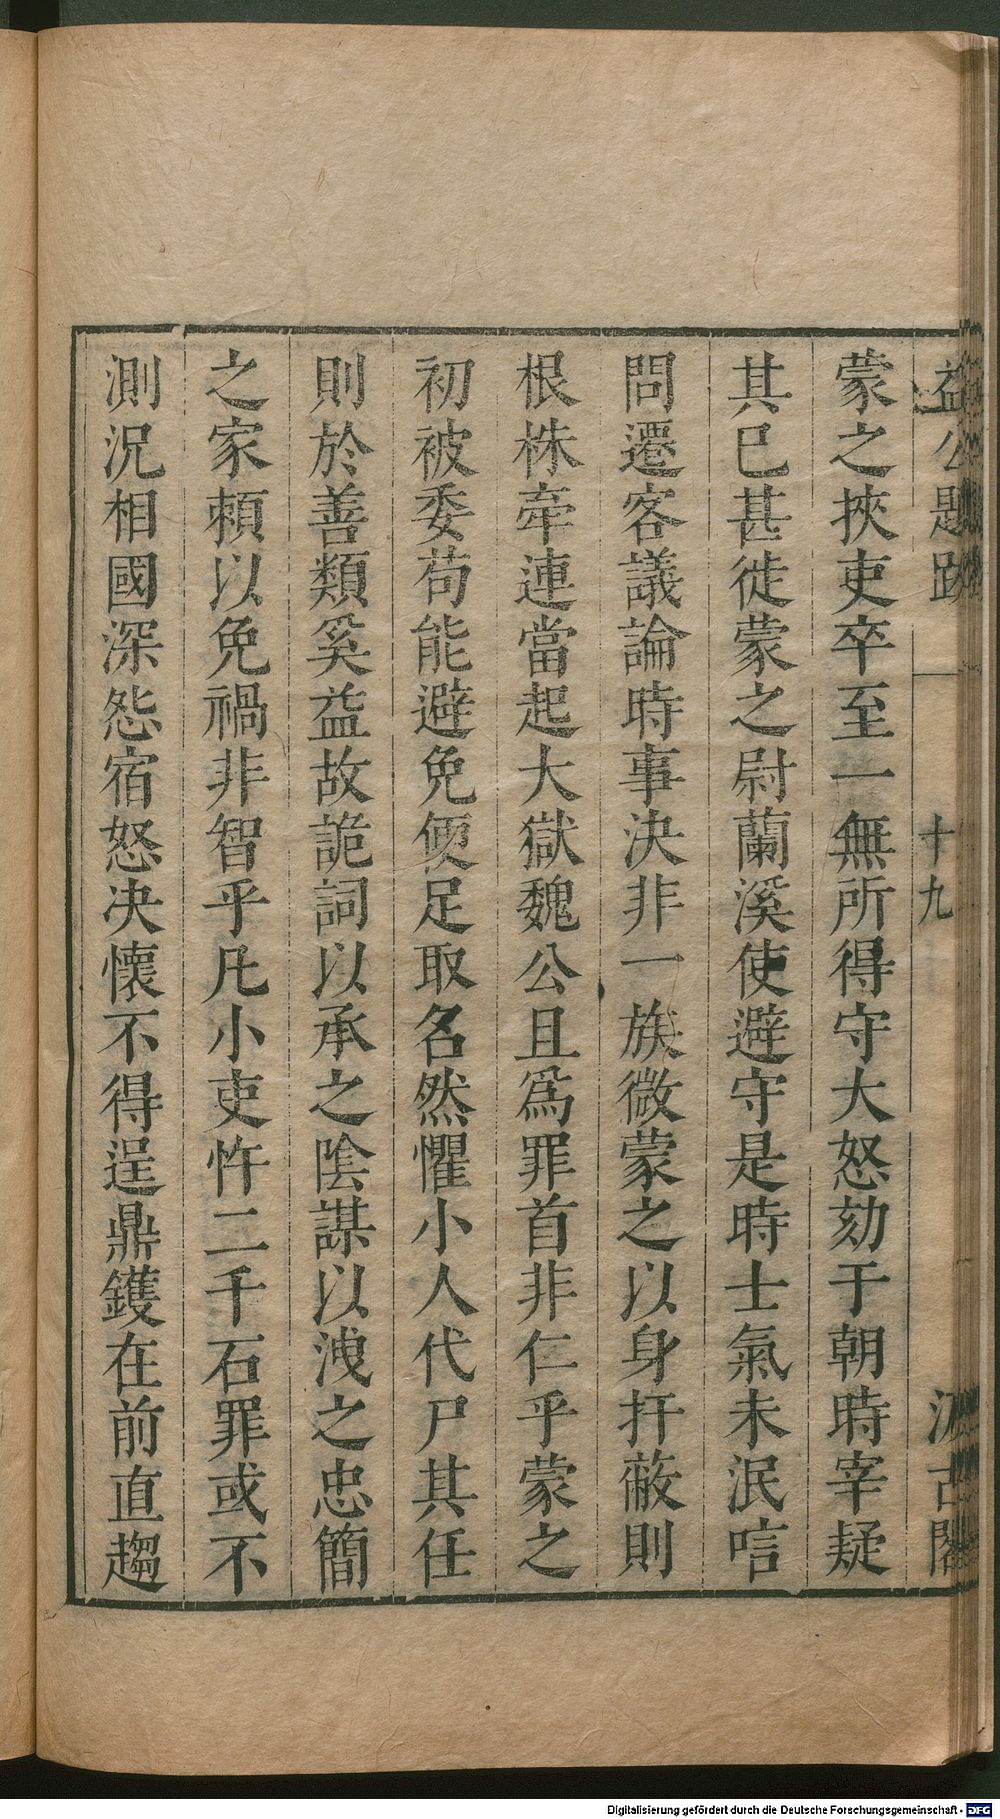 益公題跋 十九 汲古閣
蒙之挾吏卒至一無所得守大怒劾于朝時宰疑
其已甚徙蒙之尉蘭溪使避守是時士氣未泯唁
問遷客議論時事決非一族微蒙之以身扞蔽則
根株牽連當起大獄魏公且爲罪首非仁乎蒙之
初被委苟能避免便足取名然懼小人代尸其任
則於善類奚益故詭詞以承之陰謀以洩之忠簡
之家頼以免禍非智乎凡小吏忤二千石罪或不
測況相國深怨宿怒决懷不得逞鼎鑊在前直趨
Digitalisierung gefördert durch die Deutsche Forschungsgemeinschaft - DFG